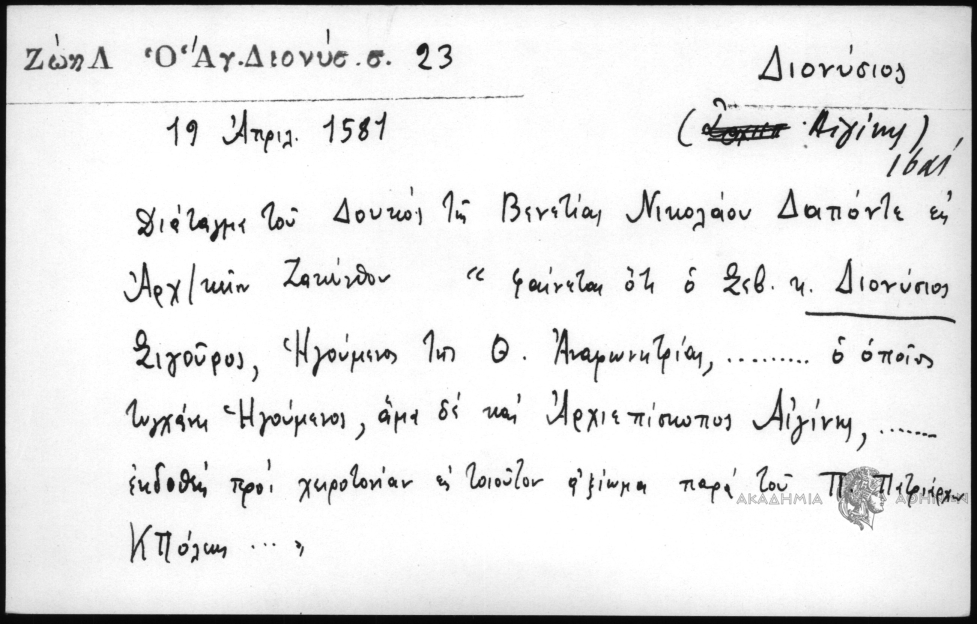 Ζώη Λ Ὁ Ἅγ. Διονύσ. σ. 23
Διονύσιος
19 Ἀπριλ. 1581
(Αἰγίνης)
16 αἰ.
Διάταγμα τοῦ Δουκὸς τῆς Βενετίας Νικολάου Δαπόντε εἰς
Ἀρχ/κην Ζακύνθου " φαίνεται ὅτι ὁ Σεβ. κ. Διονύσιος
Σιγοῦρος, Ἡγούμενος τῆς Θ. Ἀναφωνητρίας, ......... ὁ ὁποῖος
τυγχάνει Ἡγούμενος, ἅμα δὲ καὶ Ἀρχιεπίσκοπος Αἰγίνης, .......
ἐκδοθεὶς πρὸς χειροτονίαν εἰς τοιοῦτον ἀξίωμα παρὰ τοῦ Π. Πατριάρχου
ΚΠόλεως ... "
ΑΚΑΔΗΜΙΑ ΑΘΗΝΩΝ